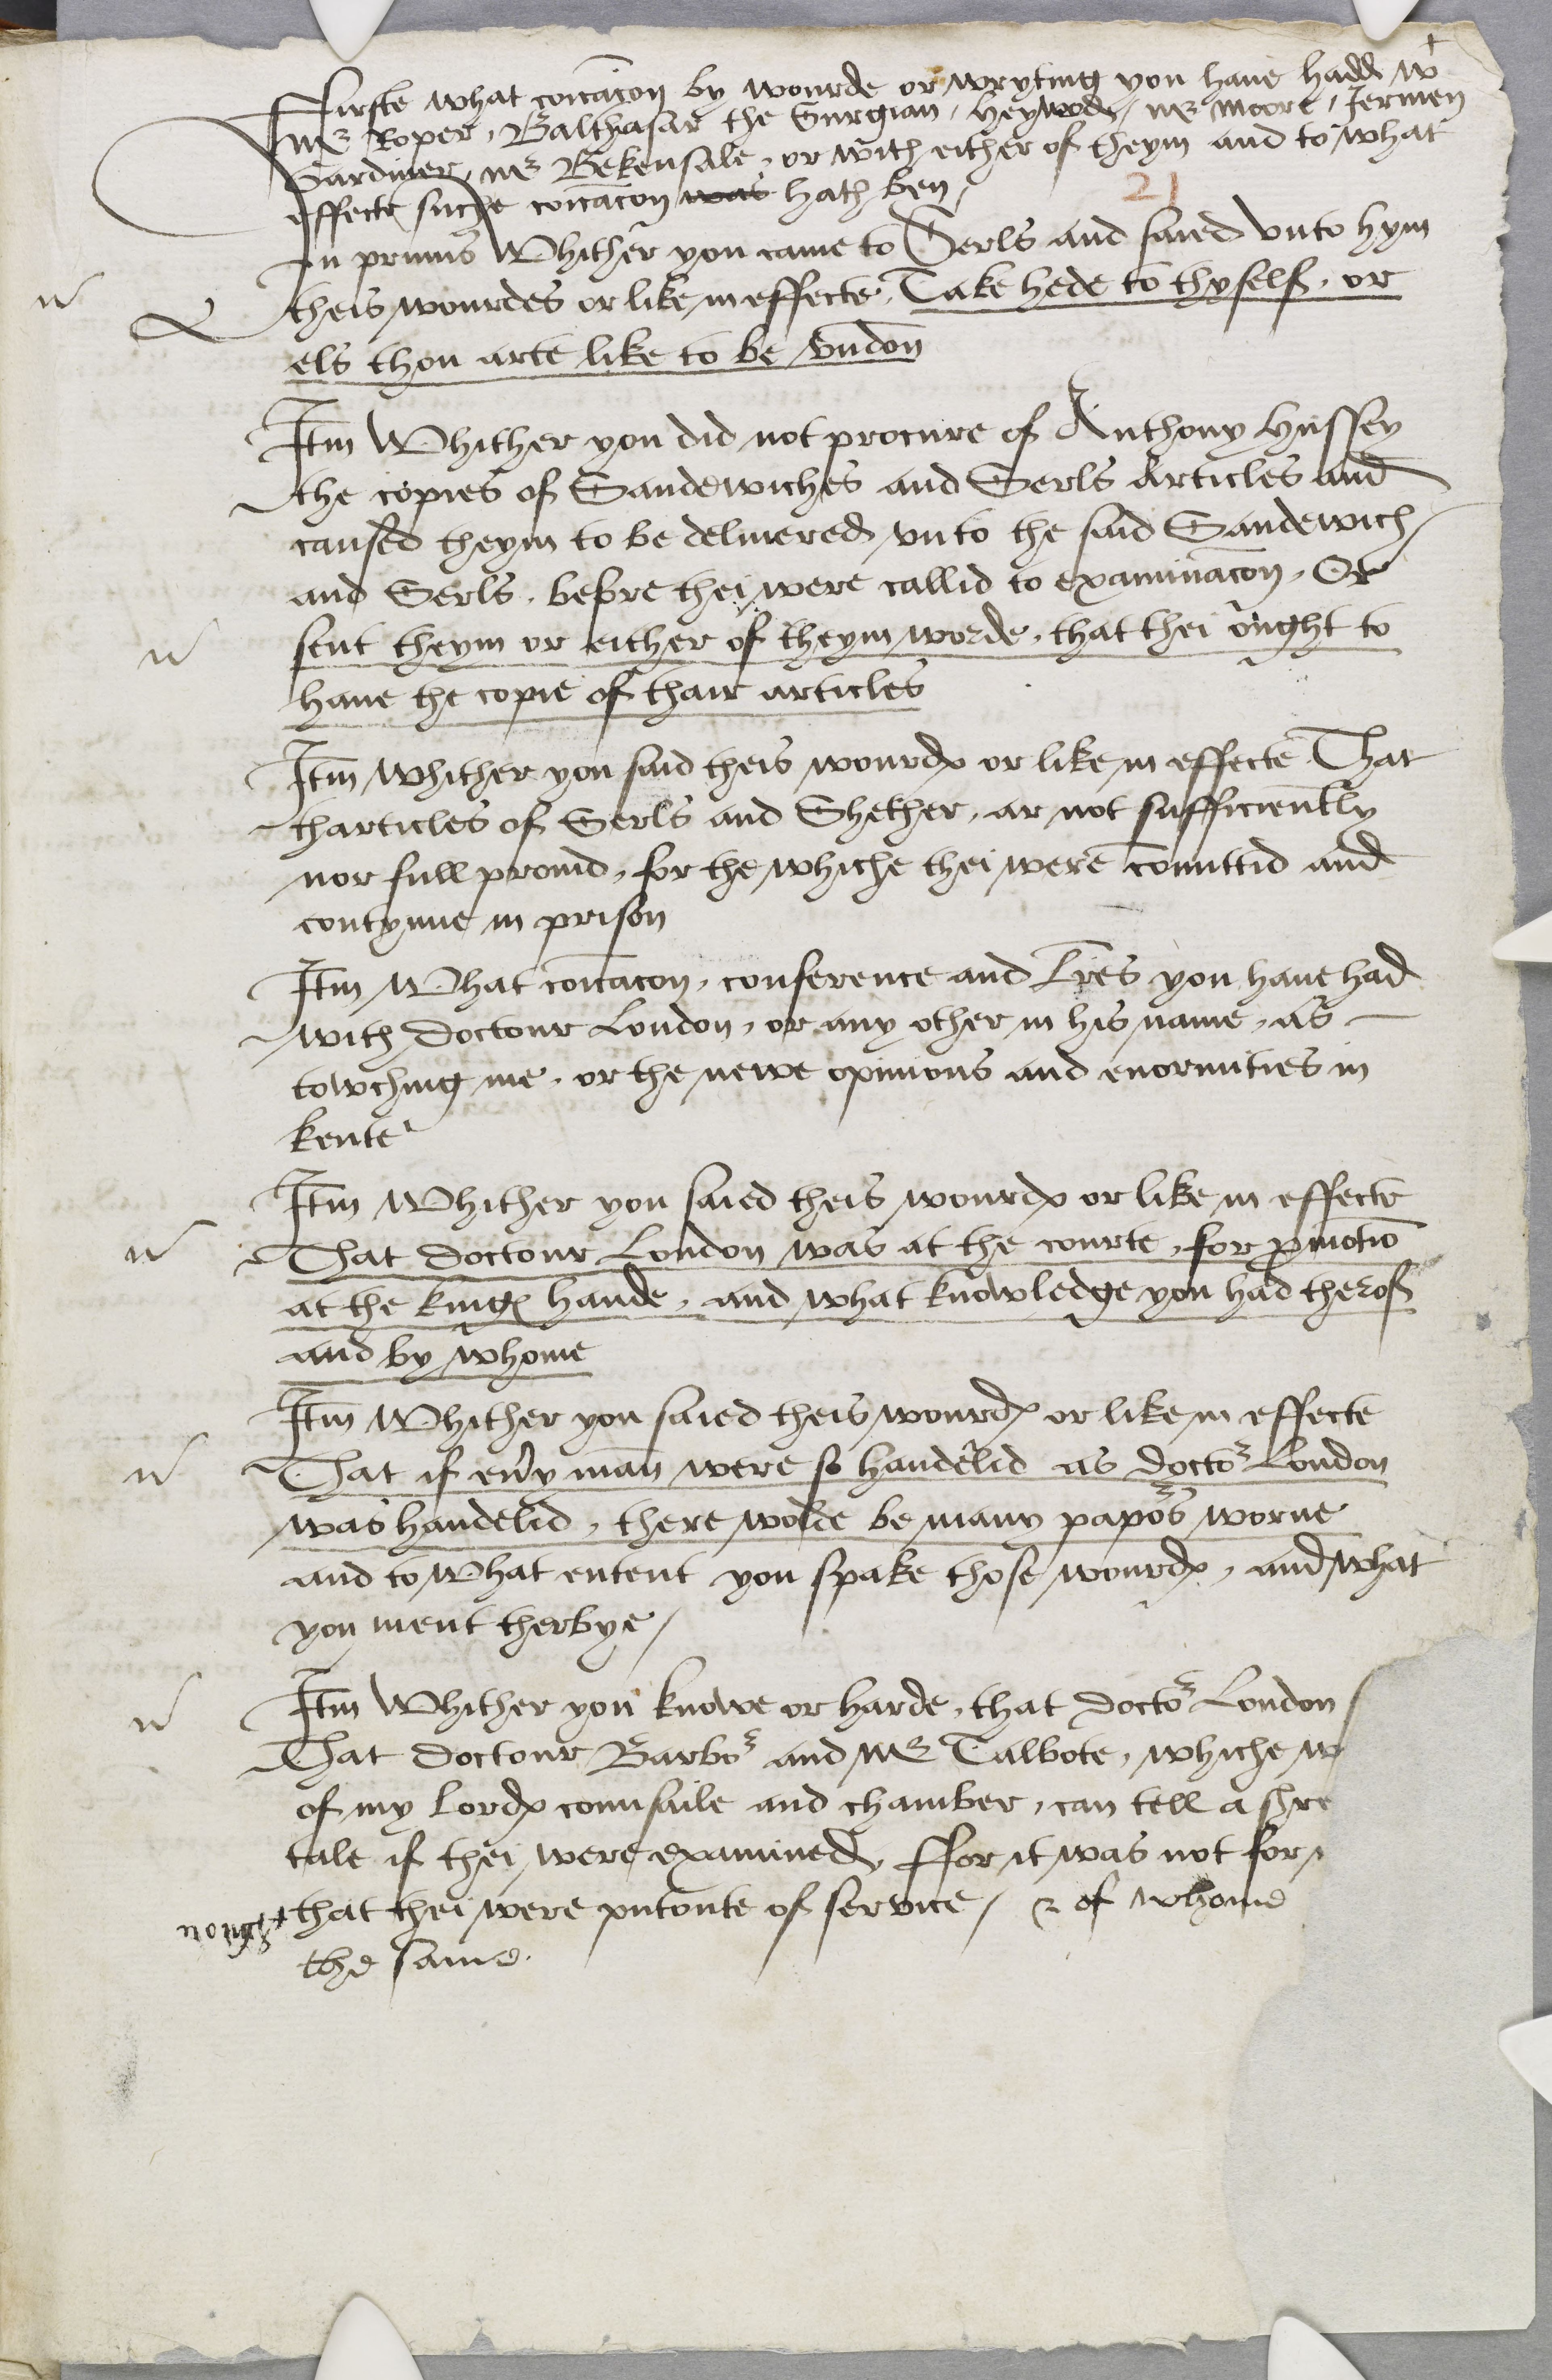 Firste what coīcacōn by wourde or wryting you haue hadd wt
mr Roper, Balthasar the Surgian, heywode, mr moore, Jermen
Gardiner, mr Bekensale, or with either of theym and to what
effecte suche coīcacōn was hath ben /
21
In primis Whither you came to Serls and saied vnto hym
theis wourdes or like in effecte, Take hede to thyself, or
els thou arte like to be vndon
Itm Whither you did not procure of Anthony Hussey
the copies of Sandewiches and Serls Articles and
caused theym to be deliuered vnto the said Sandewich
and Serls, before thei were callid to examinacōn, Or
sent theym or either of theym worde, that thei ought to
haue the copie of thair articles
Itm Whither you said theis wourdes or like in effecte That
tharticles of Serls and Shether, ar not sufficiently
nor full prouid, for the whiche thei were cōmittid and
contynue in prison
Itm What coīcacon, conference and Lr̃es you haue had
with Doctour London, or any other in his name, as
towching me, or the newe opinions and enormities in
kente
Itm Whither you saied theis wourdes or like in effecte
That Doctour London was at the courte, for pmotiō
at the kinges hande, and what knowledge you had therof
and by whome
Itm Whither you saied theis wourdes or like in effecte
That if eny man were so handelid as Doctor London
was handelid, there wolde be many papors worne
and to What entent you spake those wourdes, and what
you ment therbye /
Itm Whither you knowe or harde, that Doctor London s
That Doctour Barbor and Mr Talbote, whiche w
of my lordes counsaile and chamber, can tell a shre
tale if thei were examined, ffor it was not for n
that thei were putoute of service / & of whome
the same.